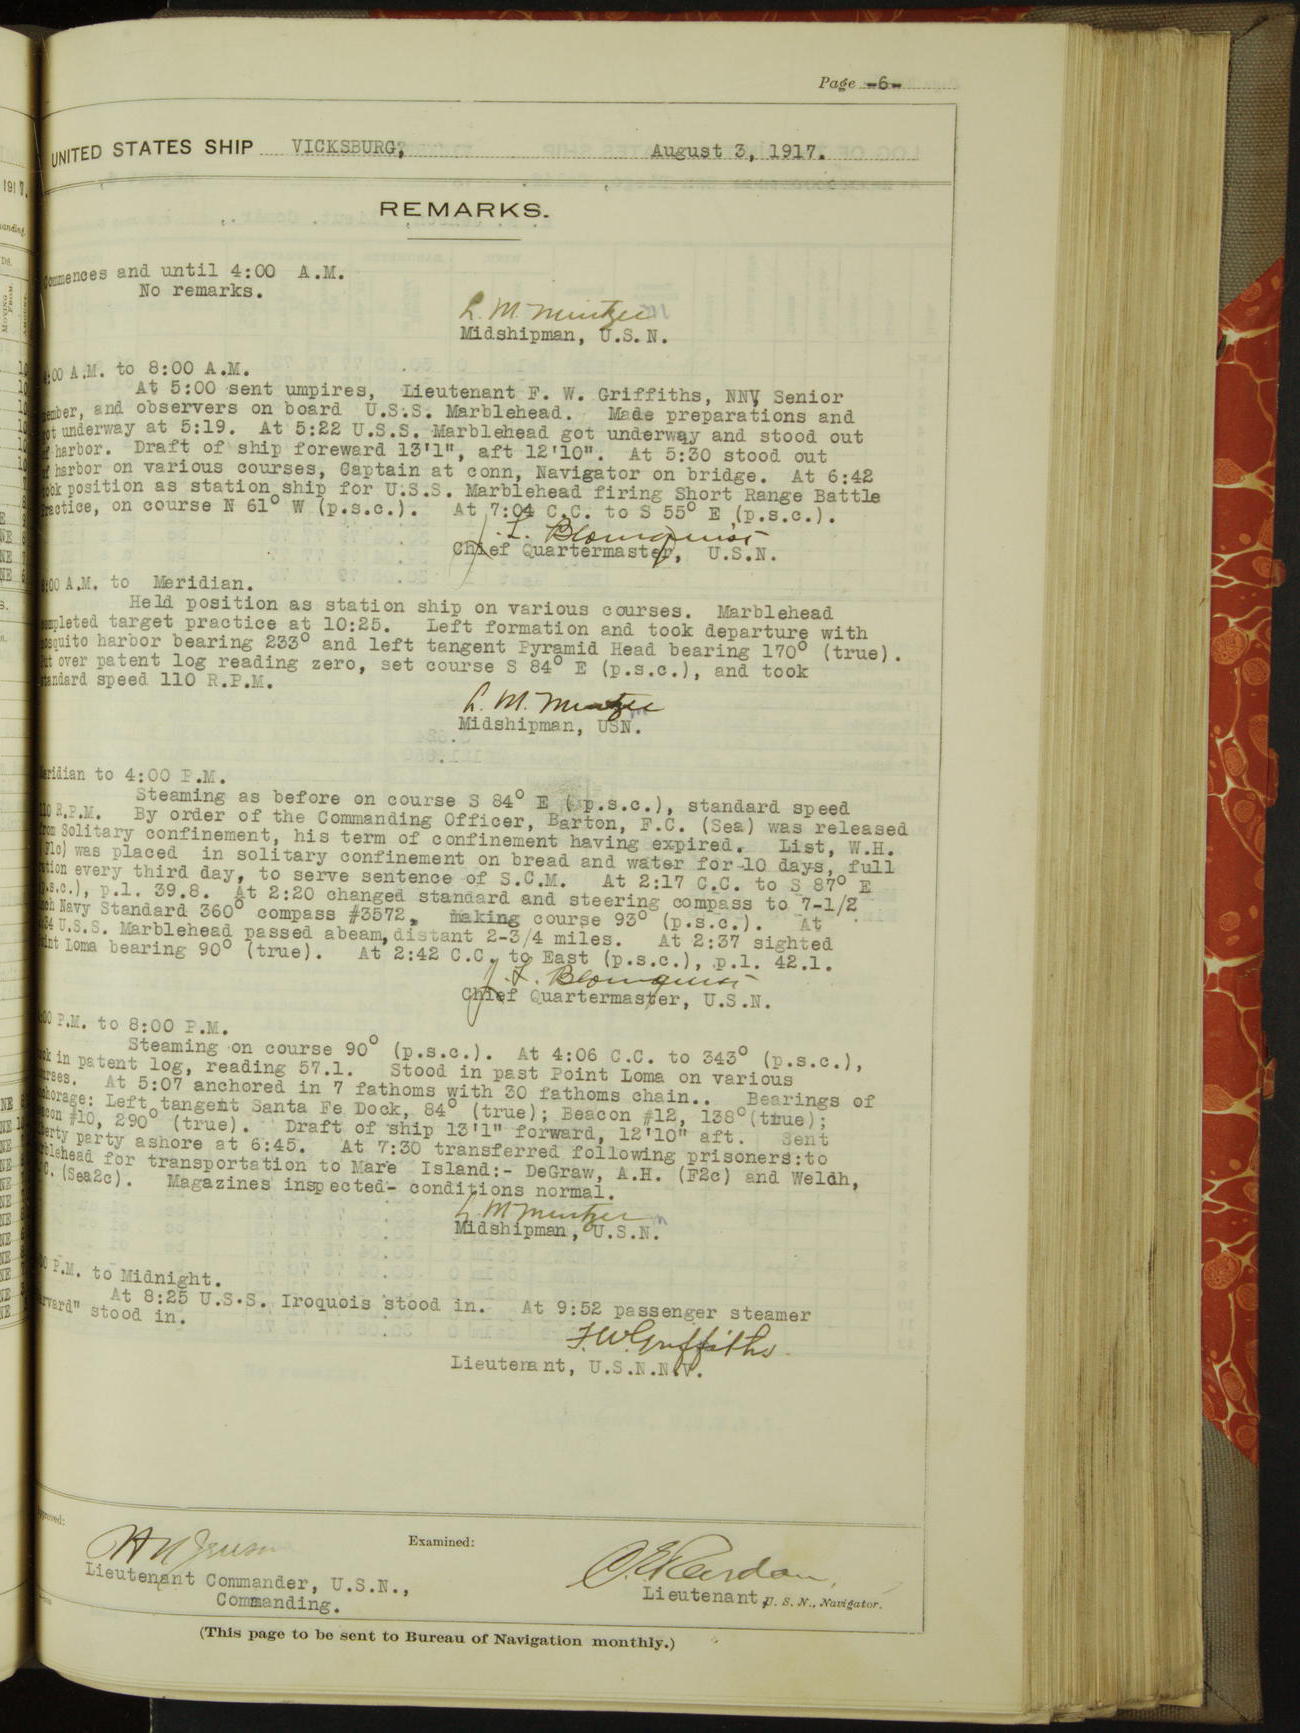 Page -6-
UNITED STATES SHIP VICKSBURG, August 3, 1917.
REMARKS.
Commences and until 4:00 A.M.
No remarks.
L. M. Mintzer
Midshipman, U.S.N.
4:00 A.M. to 8:00 A.M.
At 5:00 sent umpires, Lieutenant F. W. Griffiths, NNV, Senior
member, and observers on board U.S.S. Marblehead. Made preparations and
got underway at 5:19. At 5:22 U.S.S. Marblehead got underway and stood out
of harbor. Draft of ship foreward 13'1", aft 12'10". At 5:30 stood out
of harbor on various courses, Captain at conn, Navigator on bridge. At 6:42
took position as station ship for U.S.S. Marblehead firing Short Range Battle
Practice, on course N 61° W (p.s.c.). At 7:04 C.C. to S 55° E (p.s.c.).
J. L. Blomquist
Chief Quartermaster, U.S.N.
8:00 A.M. to Meridian.
Held position as station ship on various courses. Marblehead
completed target practice at 10:25. Left formation and took departure with
Mosquito harbor bearing 233° and left tangent Pyramid Head bearing 170° (true).
Put over patent log reading zero, set course S 84° E (p.s.c.), and took
standard speed 110 R.P.M.
L. M. Mintzer
Midshipman, USN.
Meridian to 4:00 P.M.
Steaming as before on course S 84° E (p.s.c.), standard speed
110 R.P.M. By order of the Commanding Officer, Barton, F.C. (Sea) was released
from Solitary confinement, his term of confinement having expired. List, W.H.
F1c) was placed in solitary confinement on bread and water for 10 days, full
ration every third day, to serve sentence of S.C.M. At 2:17 C.C. to S 87° E
(p.s.c.), p.l. 39.8. At 2:20 changed standard and steering compass to 7-1/2
inch Navy Standard 360° compass #3572, making course 93° (p.s.c.). At
U.S.S. Marblehead passed abeam, distant 2-3/4 miles. At 2:37 sighted
Point Loma bearing 90° (true). At 2:42 C.C. to East (p.s.c.), p.l. 42.1.
J. L. Blomquist
Chief Quartermaster, U.S.N.
4:00 P.M. to 8:00 P.M.
Steaming on course 90° (p.s.c.). At 4:06 C.C. to 343° (p.s.c.),
took in patent log, reading 57.1. Stood in past Point Loma on various
courses. At 5:07 anchored in 7 fathoms with 30 fathoms chain.. Bearings of
anchorage: Left tangent Santa Fe Dock, 84° (true); Beacon #12, 138°(true);
Beacon #10, 290° (true). Draft of ship 13'1" forward, 12'10" aft. Sent
liberty party ashore at 6:45. At 7:30 transferred following prisoners:to
Marblehead for transportation to Mare Island:- DeGraw, A.H. (F2c) and Weldh,
C. (Sea2c). Magazines inspected- conditions normal.
L. M. Mintzer
Midshipman, U.S.N.
8:00 P.M. to Midnight.
At 8:25 U.S.S. Iroquois stood in. At 9:52 passenger steamer
"Harvard" stood in.
F. W. Griffiths
Lieutenant, U.S.N.N.V.
Approved:
Examined:
Lieutenant Commander, U.S.N.,
Commanding.
Lieutenant, U. S. N., Navigator.
(This page to be sent to Bureau of Navigation monthly.)